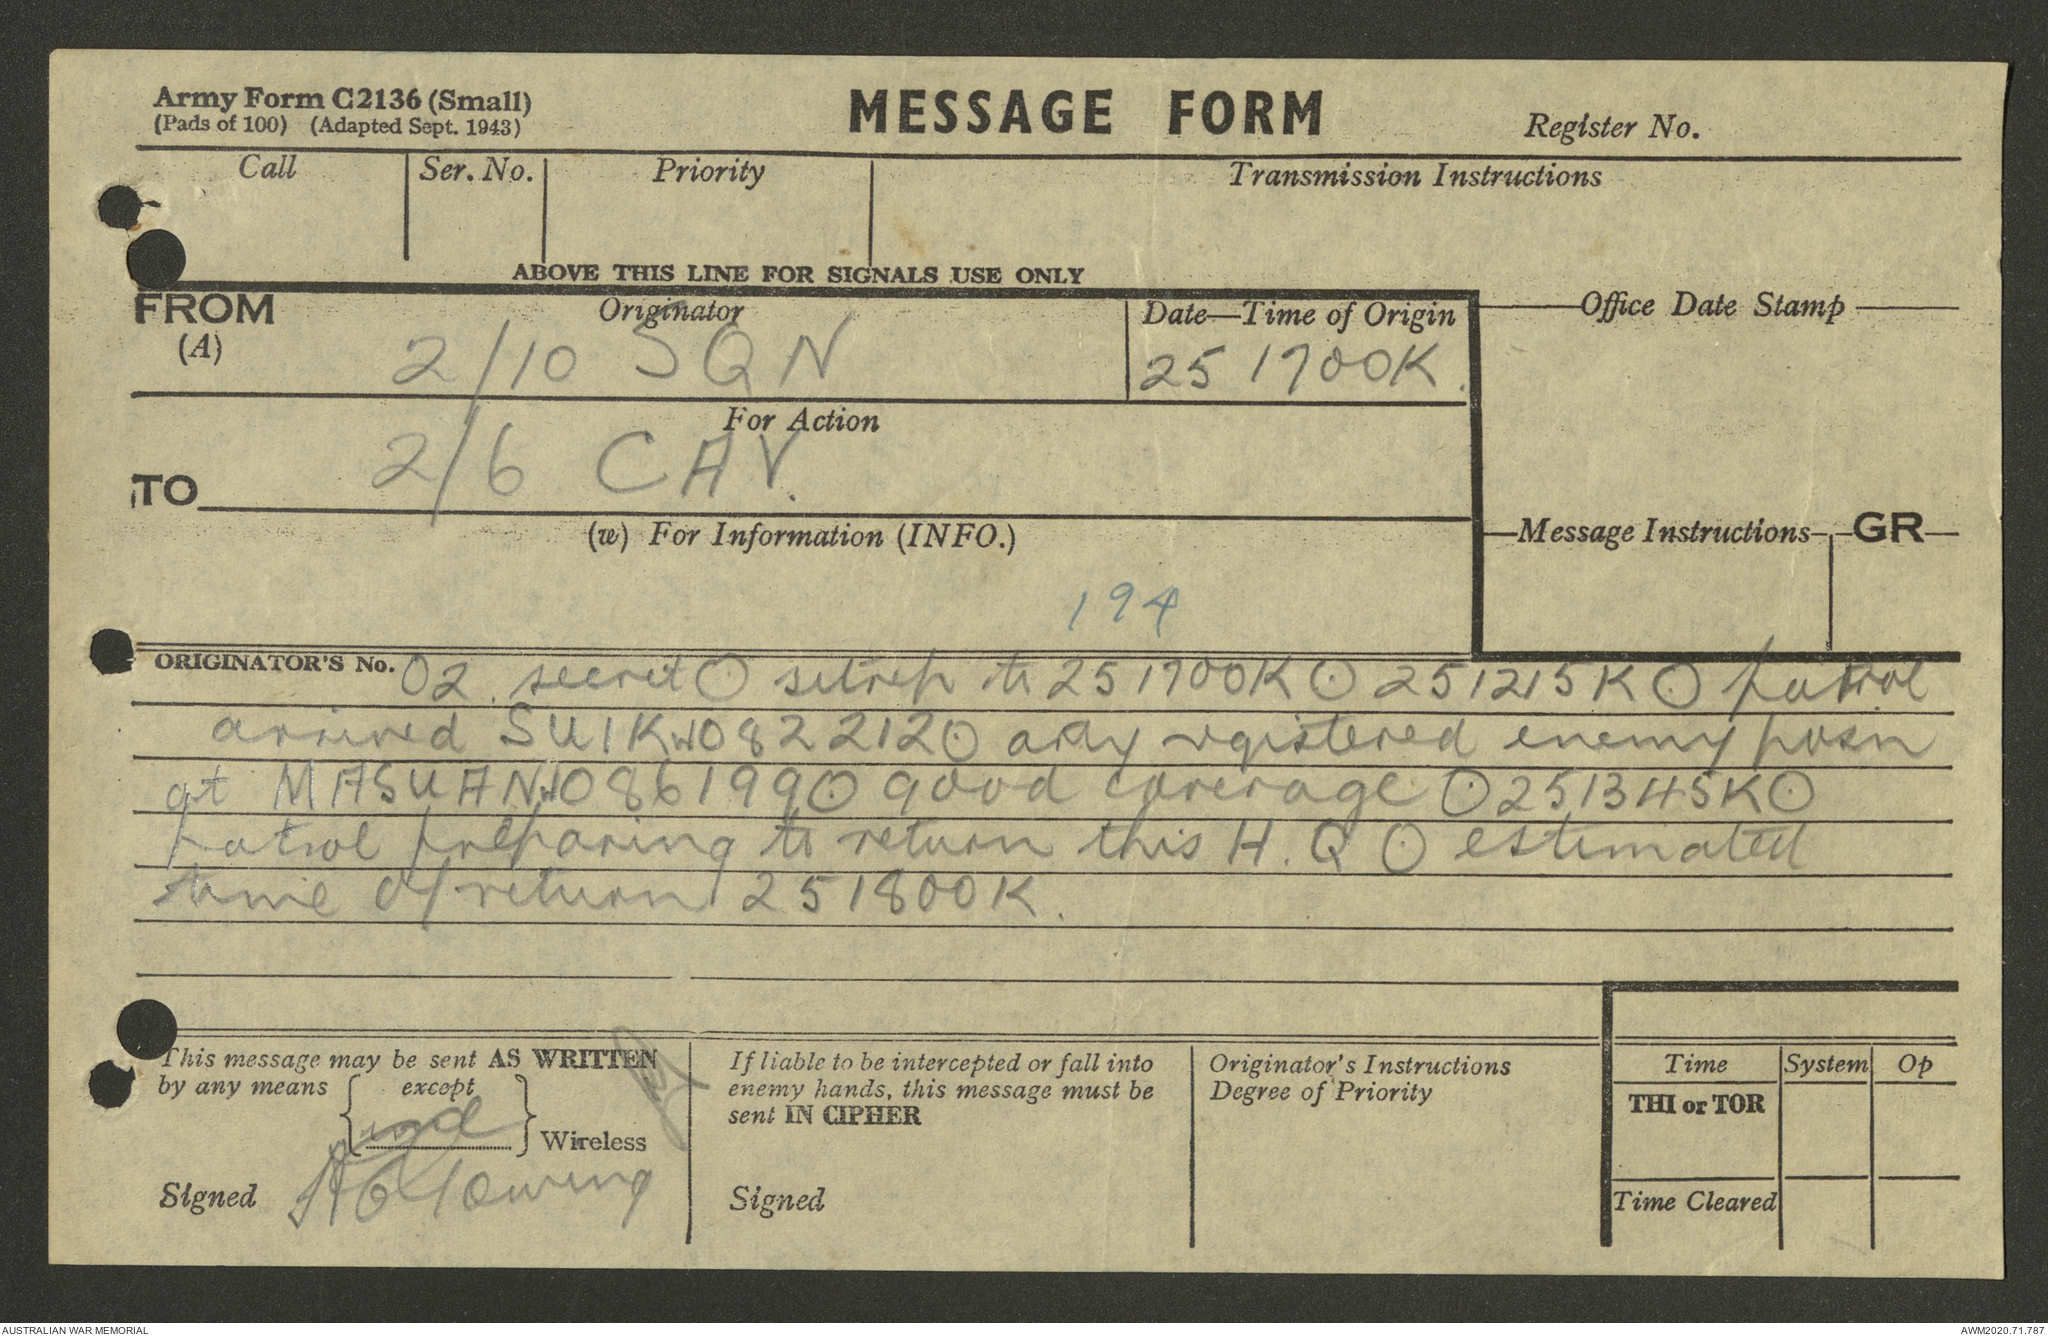 Army Form C2136 (Small)
(Pads of 100) (Adapted Sept. 1943)
MESSAGE FORM
Register No.
Call
Ser. No.
Priority
Transmission Instructions
ABOVE THIS LINE FOR SIGNALS USE ONLY
FROM
(A)
Originator
2/10 SQN
Date—Time of Origin
251700K.
Office Date Stamp
For Action
TO
2/6 CAV.
(w) For Information (INFO.)
Message Instructions
GR
194
ORIGINATOR'S No. O2 secret ⊙ sitrep to 251700K ⊙ 251215K ⊙ patrol
arrived SUIKW082212 ⊙ arty registered enemy posn
at MASUAN 086199 ⊙ good coverage ⊙ 251345K ⊙
patrol preparing to return this H.Q ⊙ estimated
time of return 251800K.
This message may be sent AS WRITTEN
by any means { except
} Wireless
Signed
If liable to be intercepted or fall into
enemy hands, this message must be
sent IN CIPHER
Signed
Originator's Instructions
Degree of Priority
Time
System
Op
THI or TOR
Time Cleared
AUSTRALIAN WAR MEMORIAL
AWM2020.71.787